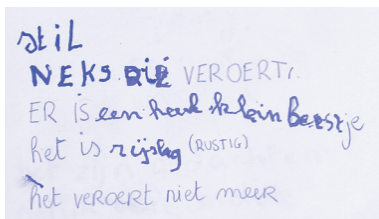 stiL
NEKS die VEROERT.
ER is een heel klein Beestje
het is rijslag (RUSTIG)
het VEROERT niet MEER